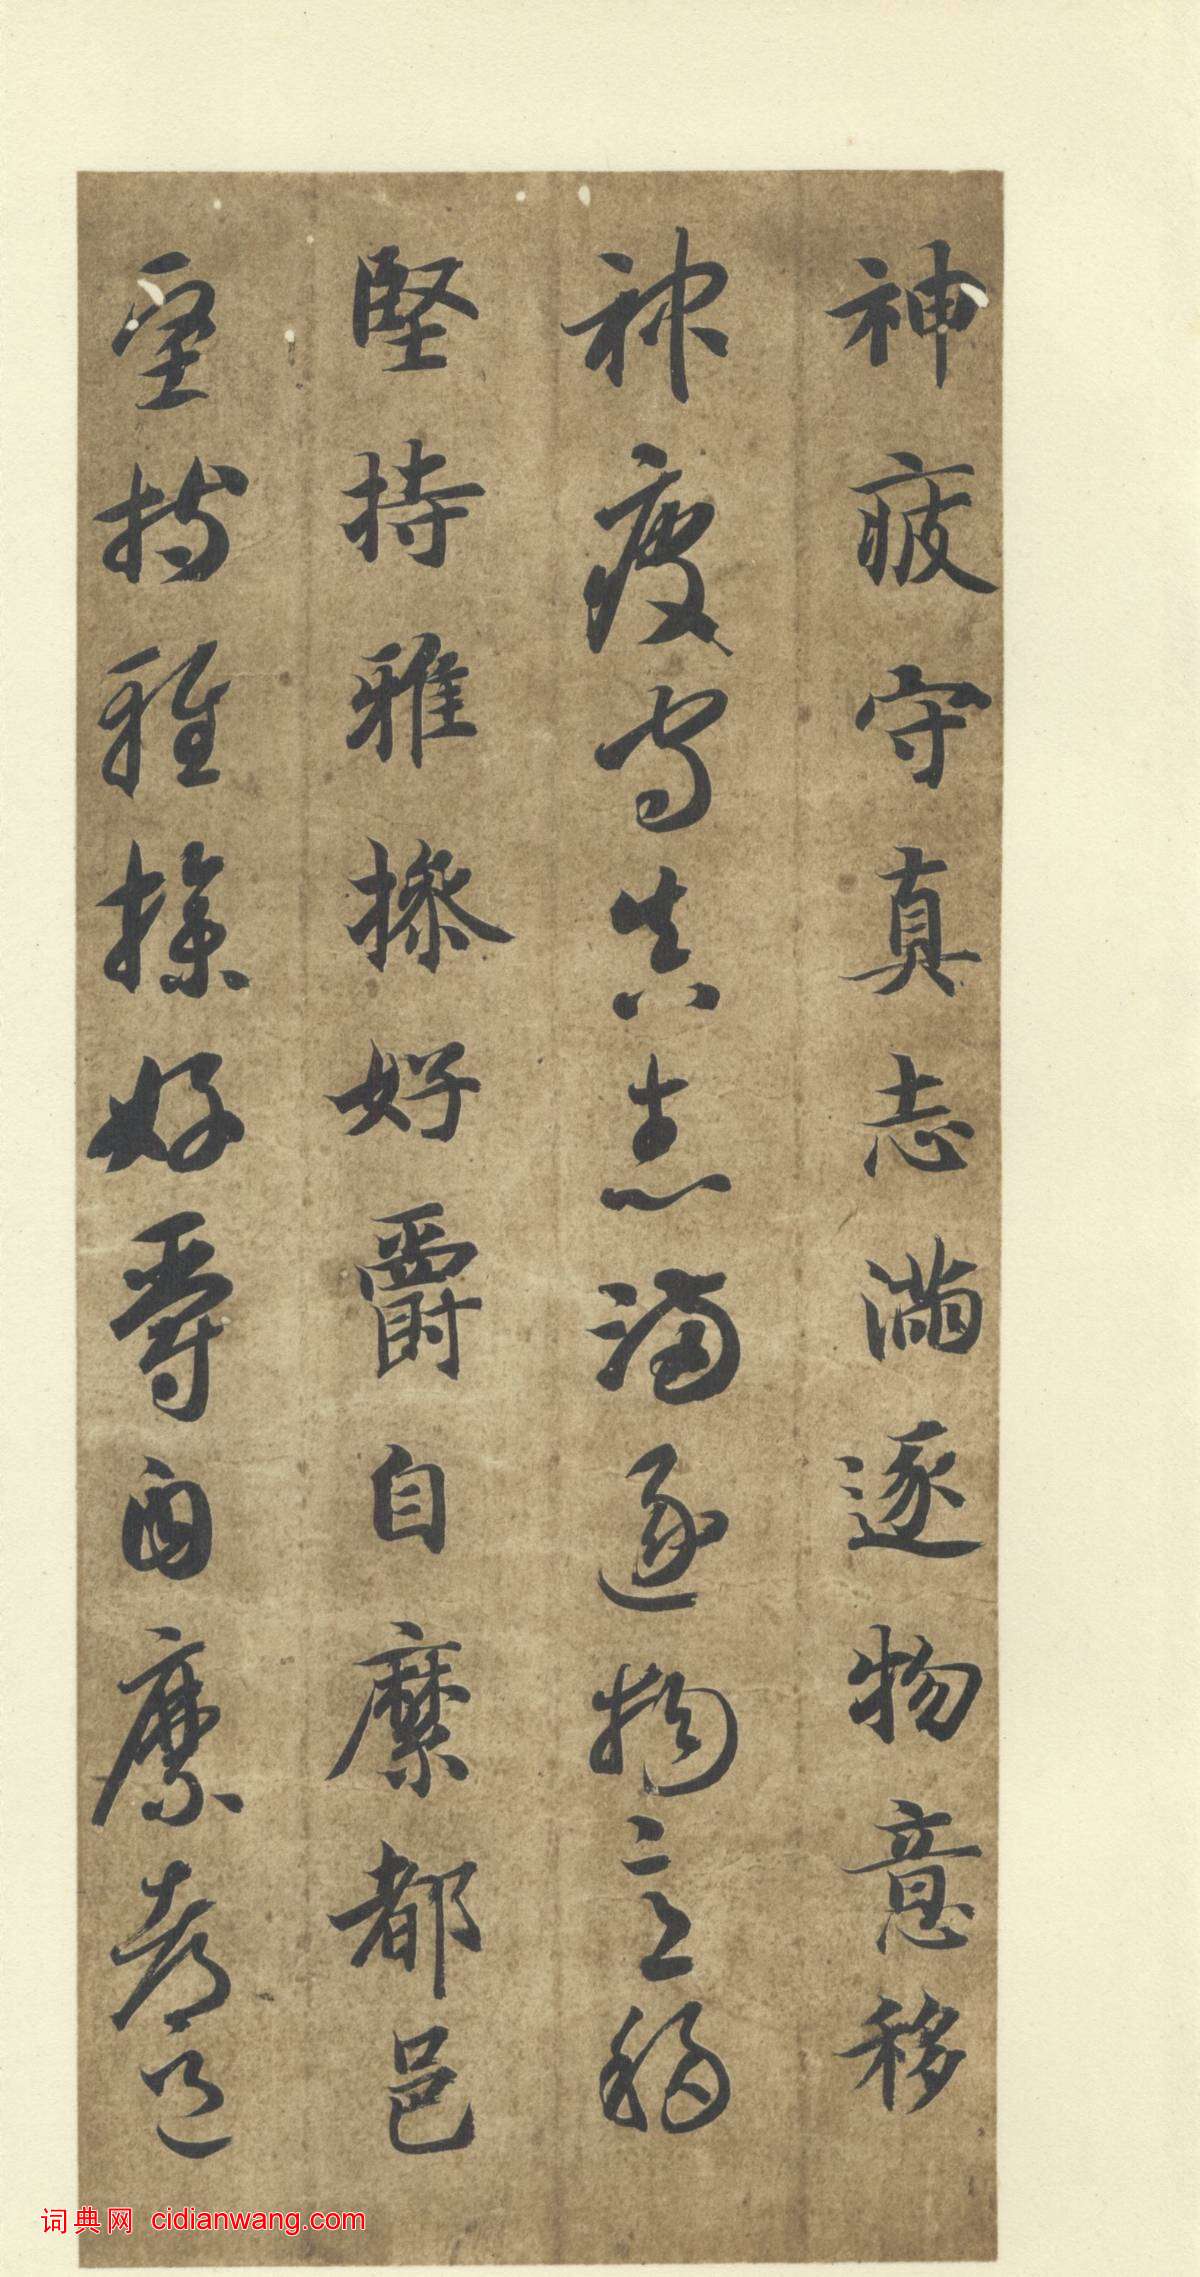 神疲守真志滿逐物意移
神疲守真志滿逐物意移
堅持雅操好爵自縻都邑
堅持雅操好爵自縻都邑
词典网 cidianwang.com